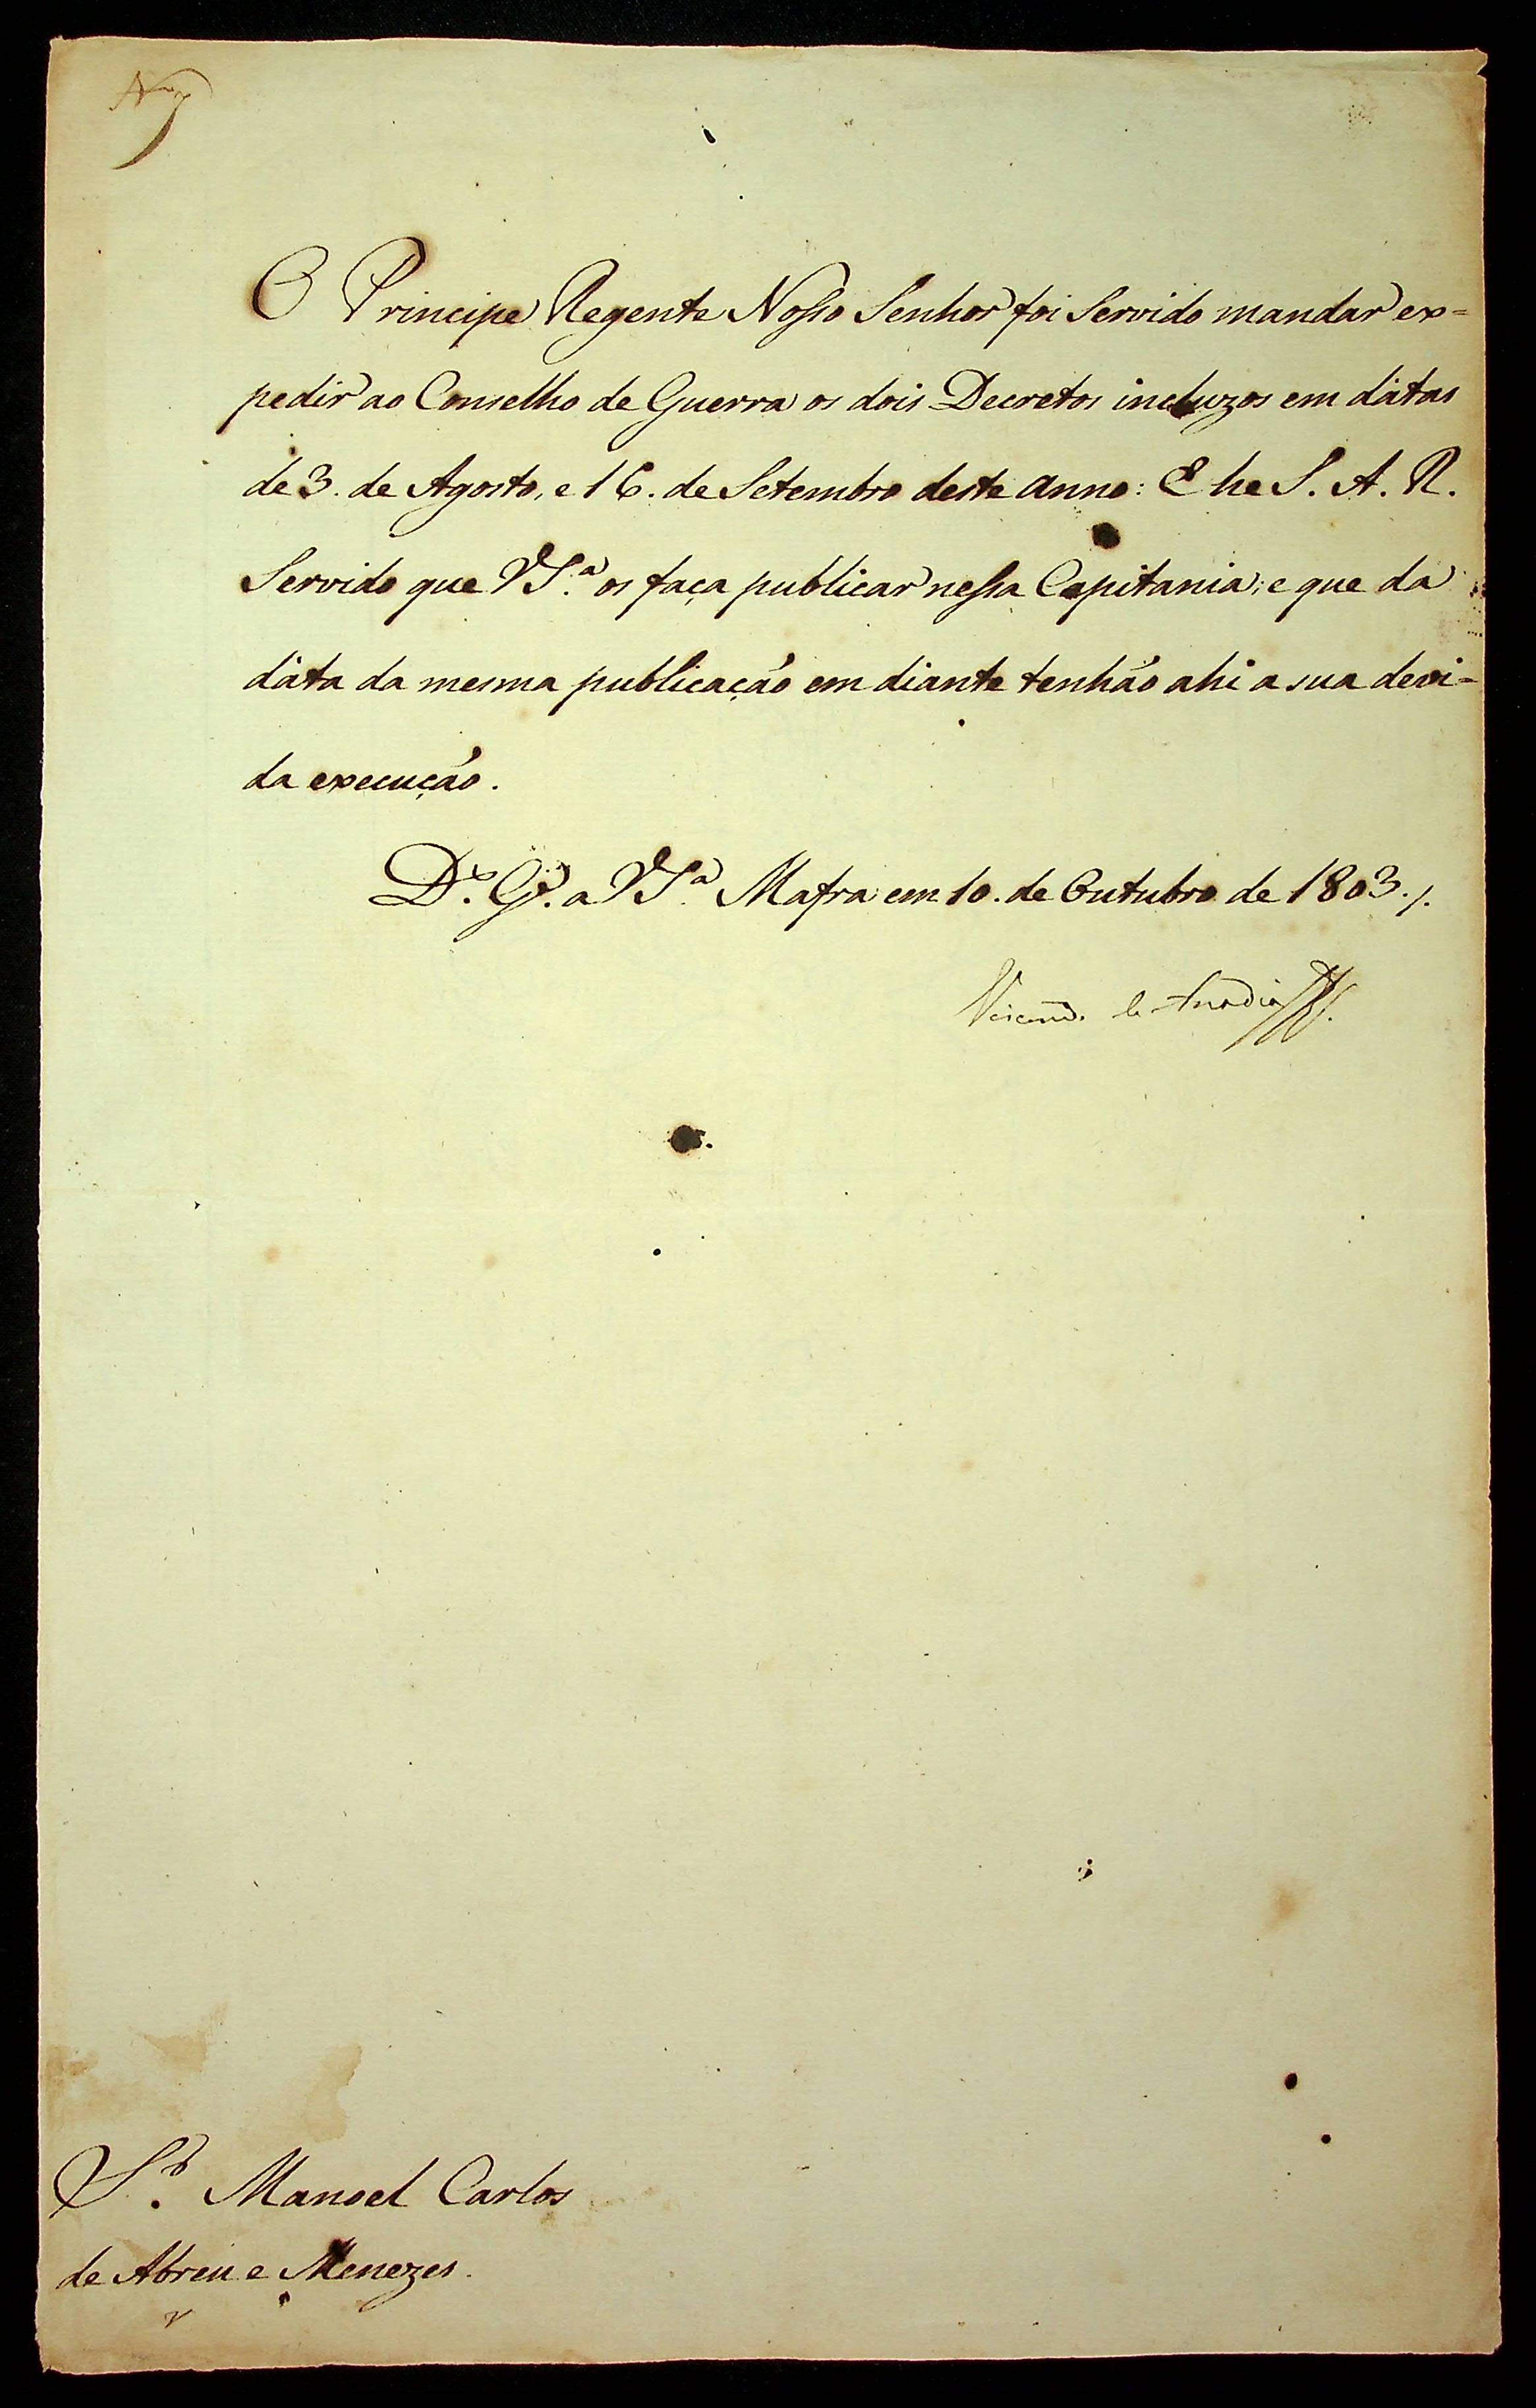 O Principe Regente Nosso Senhor foi Servido mandar ex=
pedir ao Conselho de Guerra os dois Decretos incluzos em datas
de 3. de Agosto, e 16. de Setembro deste anno: E he S. A. R.
Servido que VS.ª os faça publicar nessa Capitania; e que da
data da mesma publicação em diante tenhão ahi a sua devi=
da execução.
D.s G.e a VS.ª Mafra em 10. de Outubro de 1803. /.
de Anadia
S.r Manoel Carlos
de Abreu e Menezes.